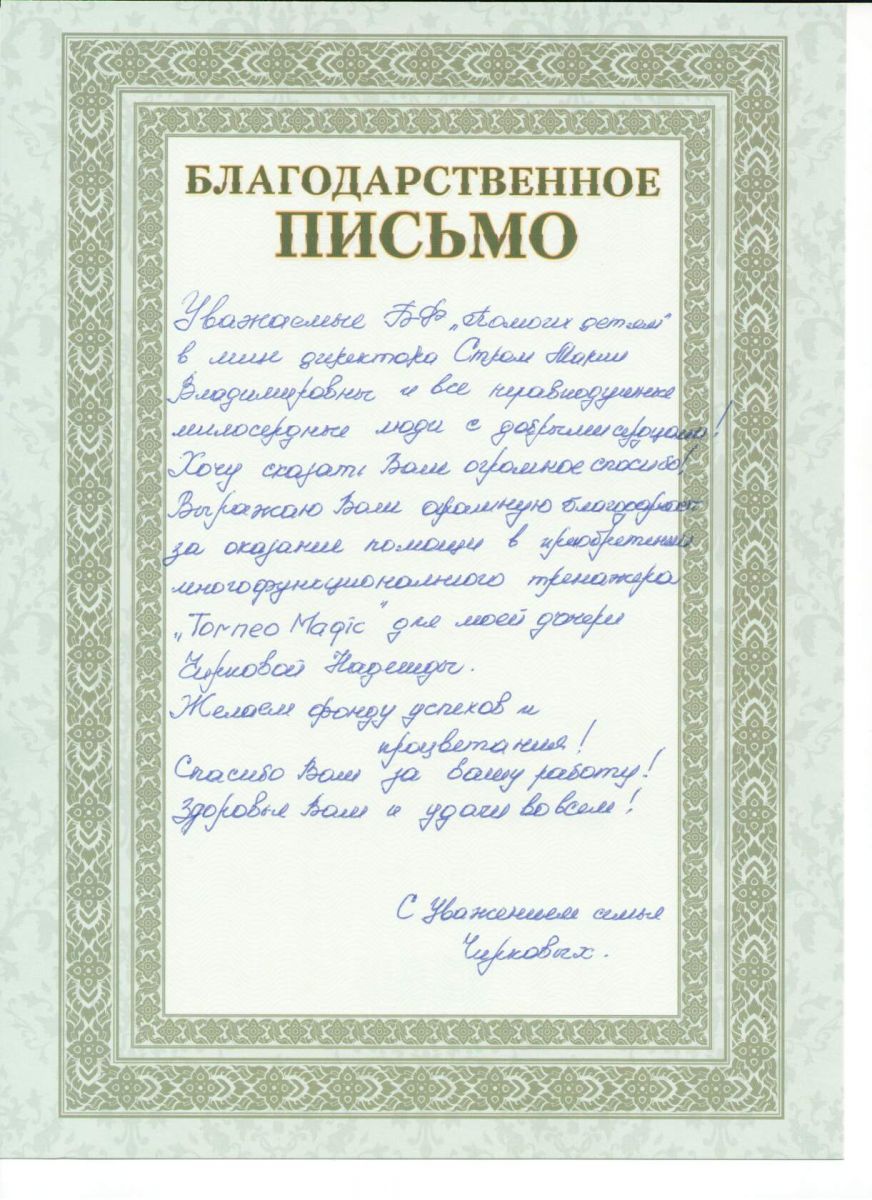 БЛАГОДАРСТВЕННОЕ
ПИСЬМО
Уважаемые БФ „Помоги детям"
в лице директора Марии
Владимировны и все неравнодушные
милосердные люди с добрыми сердцами!
Хочу сказать Вам огромное спасибо!
Выражаю Вам огромную благодарность
за оказание помощи в приобретении
многофункционального тренажера
„Torneo Magic" для моей дочери
Чирковой Надежды.
Желаем фонду успехов и
процветания!
Спасибо Вам за вашу работу!
Здоровья Вам и удачи во всем!
С Уважением семья
Чирковых.